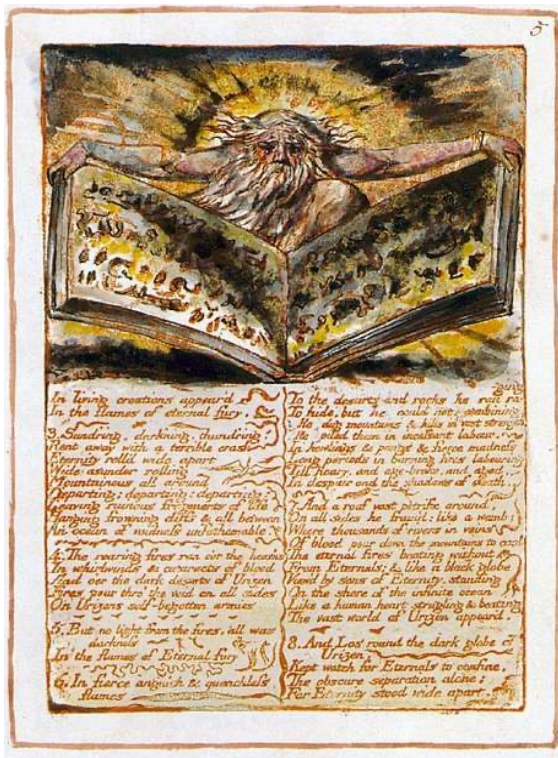 5
In living creations appear'd
In the flames of eternal fury.
3. Sundring, darkning, thundring!
Rent away with a terrible crash
Eternity rolld wide apart
Wide asunder rolling
Mountainous all around
Departing; departing; departing:
Leaving ruinous fragments of life
Hanging frowning cliffs & all between
An ocean of voidness unfathomable.
4. The roaring fires ran o'er the heav'ns
In whirlwinds & cataracts of blood
And o'er the dark desarts of Urizen
Fires pour thro' the void on all sides
On Urizens self-begotten armies
5. But no light from the fires. all was
darkness
In the flames of Eternal fury
6. In fierce anguish & quenchless
flames
-ging
To the desarts and rocks he ran ra-
To hide, but he could not: combining
He dug mountains & hills in vast strength,
He piled them in incessant labour,
In howlings & pangs & fierce madness
Long periods in burning fires labouring
Till hoary, and age-broke, and aged,
In despair and the shadows of death.
7. And a roof vast petrific around,
On all sides he fram'd: like a womb;
Where thousands of rivers in veins
Of blood pour down the mountains to cool
The eternal fires beating without
From Eternals; & like a black globe
View'd by sons of Eternity, standing
On the shore of the infinite ocean
Like a human heart strugling & beating
The vast world of Urizen appear'd.
8. And Los round the dark globe of
Urizen,
Kept watch for Eternals to confine,
The obscure separation alone;
For Eternity stood wide apart,